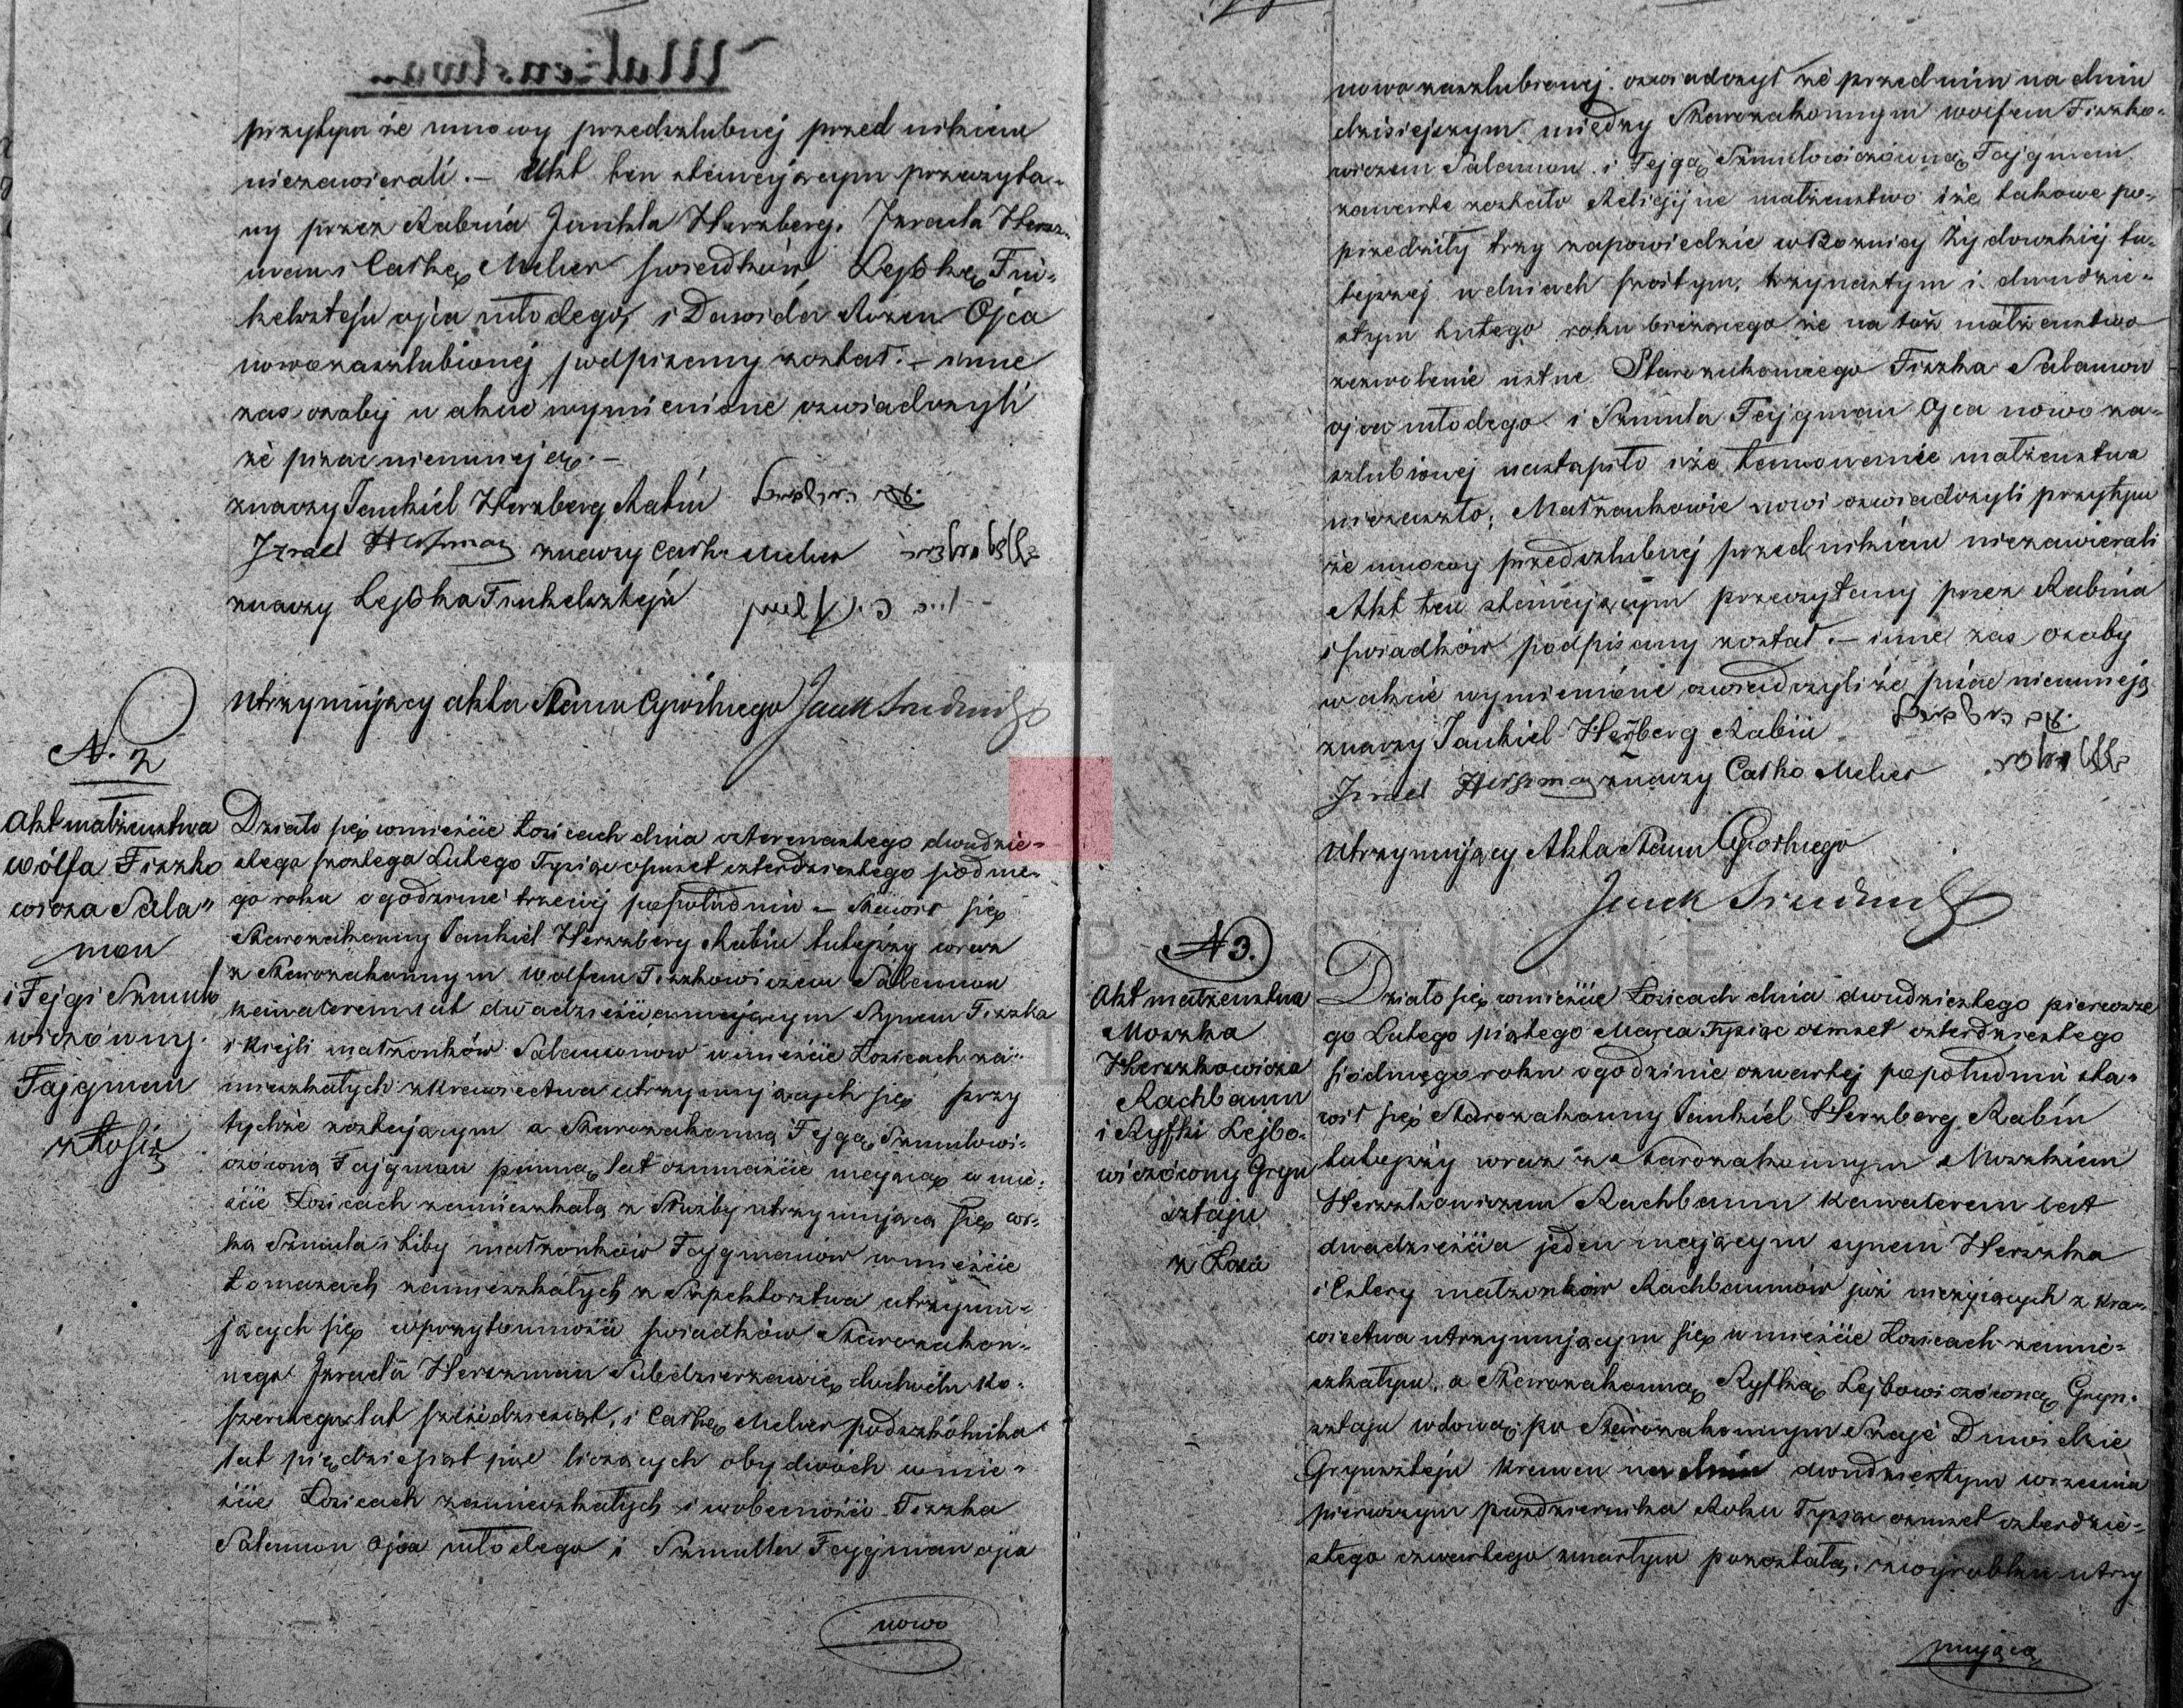 Małżeństwa
przytym że umowy przedszlubnej przed nikiem
niezawierali. – Akt ten stawiającym przeczyta-
ny przez Rabina Jankla Herszberg, Izraela Hersz-
mana i Caśkę Meher świadków, Lejbkę Fin-
kelsztejn ojca młodego, i Dawida Rozen Ojca
nowozaszlubionej podpisany został. – inne
zas osoby w akcie wymienione oswiadczyli
że pisac nieumieją. –
znaczy Jankiel Herszberg Rabin
Izrael Herszman znaczy Caśka Meher
znaczy Lejbka Finkelsztejn
Utrzymujący akta Stanu Cywilnego
N. 2
Akt małżenstwa
Wólfa Fiszko
wicza Sala"
mon
i Fejgi Szmulo
wiczówny
Fajgman
z Łosic
Działo się w mieście Łosicach dnia czternastego dwudzie-
stego szostego Lutego Tysiąc osmset czterdziestego siódme-
go roku o godzinie trzeciej popołudniu – Stawił się
Starozakonny Jankiel Herszberg Rabin tutejszy wraz
z Starozakonnym Wolfem Fiszkowiczem Salamon
kawalerem lat dwadzieścia mającym Synem Fiszka
i Kiejli małzonków Salamonow w mieście Łosicach za-
mieszkałych z krawiectwa utrzymujących się przy
tychże zostającym a Starozakonną Fejgą Szmulowi-
czówną Fajgman panną lat osmnaście mającą w mie-
ście Łosicach zamieszkałą z Służby utrzymującą się cór-
ką Szmula i Liby małzonków Fajgmanów w mieście
Łomazach zamieszkałych z Szpektorstwa utrzymu-
jących się w przytomności świadków Starozakon-
nego Izraela Herszman Subdzierżawcę dochodu Ko-
szernego lat sześćdziesiąt, i Caśkę Meher podszkólnika
lat pięćdziesiąt pięć liczących obydwóch w mie-
ście Łosicach zamieszkałych i w obecności Fiszka
Salamon Ojca młodego i Szmulla Fajgman ojca
nowo
nowozaszlubionej. oswiadczył że przed nim na dniu
dzisiejszym między Starozakonnym Wolfem Fiszko-
wiczem Salamon i Fejgą Szmulowiczówną Fajgman
zawarte zostało Religijne małżenstwo i że takowe po-
przedziły trzy zapowiedzie w Boznicy Żydowskiej tu-
tejszej w dniach szóstym, trzynastym i dwudzie-
stym Lutego roku bieżącego że na toż małżenstwo
zezwolenie ustne Starozakonnego Fiszka Salamon
ojca młodego i Szmula Fajgman Ojca nowo za-
szlubionej nastąpiło i że tamowanie małżenstwa
niezaszło; Małżonkowie nowi oswiadczyli przytym
że umowy przedszlubnej przed nikiem niezawierali
Akt ten stawiającym przeczytany przez Rabina
i świadków podpisany został. – inne zas osoby
w akcie wymienione oswiadczyli że pisac nieumieją
znaczy Jankiel Herszberg Rabin
Izrael Herszman znaczy Caśko Meher
Utrzymujący Akta Stanu Cywilnego
N 3.
Akt małzenstwa
Moszka
Herszkowicza
Rachbaum
i Ryfki Lejbo-
wiczówny Gryn
sztajn
z Łosic
Działo się w mieście Łosicach dnia dwudziestego pierwsze
go Lutego piątego Marca Tysiąc osmset czterdziestego
siódmego roku o godzinie czwartej popołudniu sta-
wił się Starozakonny Jankiel Herszberg Rabin
tutejszy wraz z Starozakonnym Moszkiem
Herszkowiczem Rachbaum kawalerem lat
dwadzieścia jeden mającym synem Herszka
i Estery małzonków Rachbaumów już nieżyjących z kra-
wiectwa utrzymującym się w mieście Łosicach zamie-
szkałym, a Starozakonną Ryfką Lejbowiczówną Gryn-
sztajn wdową po Starozakonnym Szaji Dawidzie
Grynsztejn dwudziestym wrzesnia
pierwszym pazdziernika Roku Tysiąc osmset czterdzie-
stego czwartego zmarłym pozostałą, z wyrobku utrzy
mującą